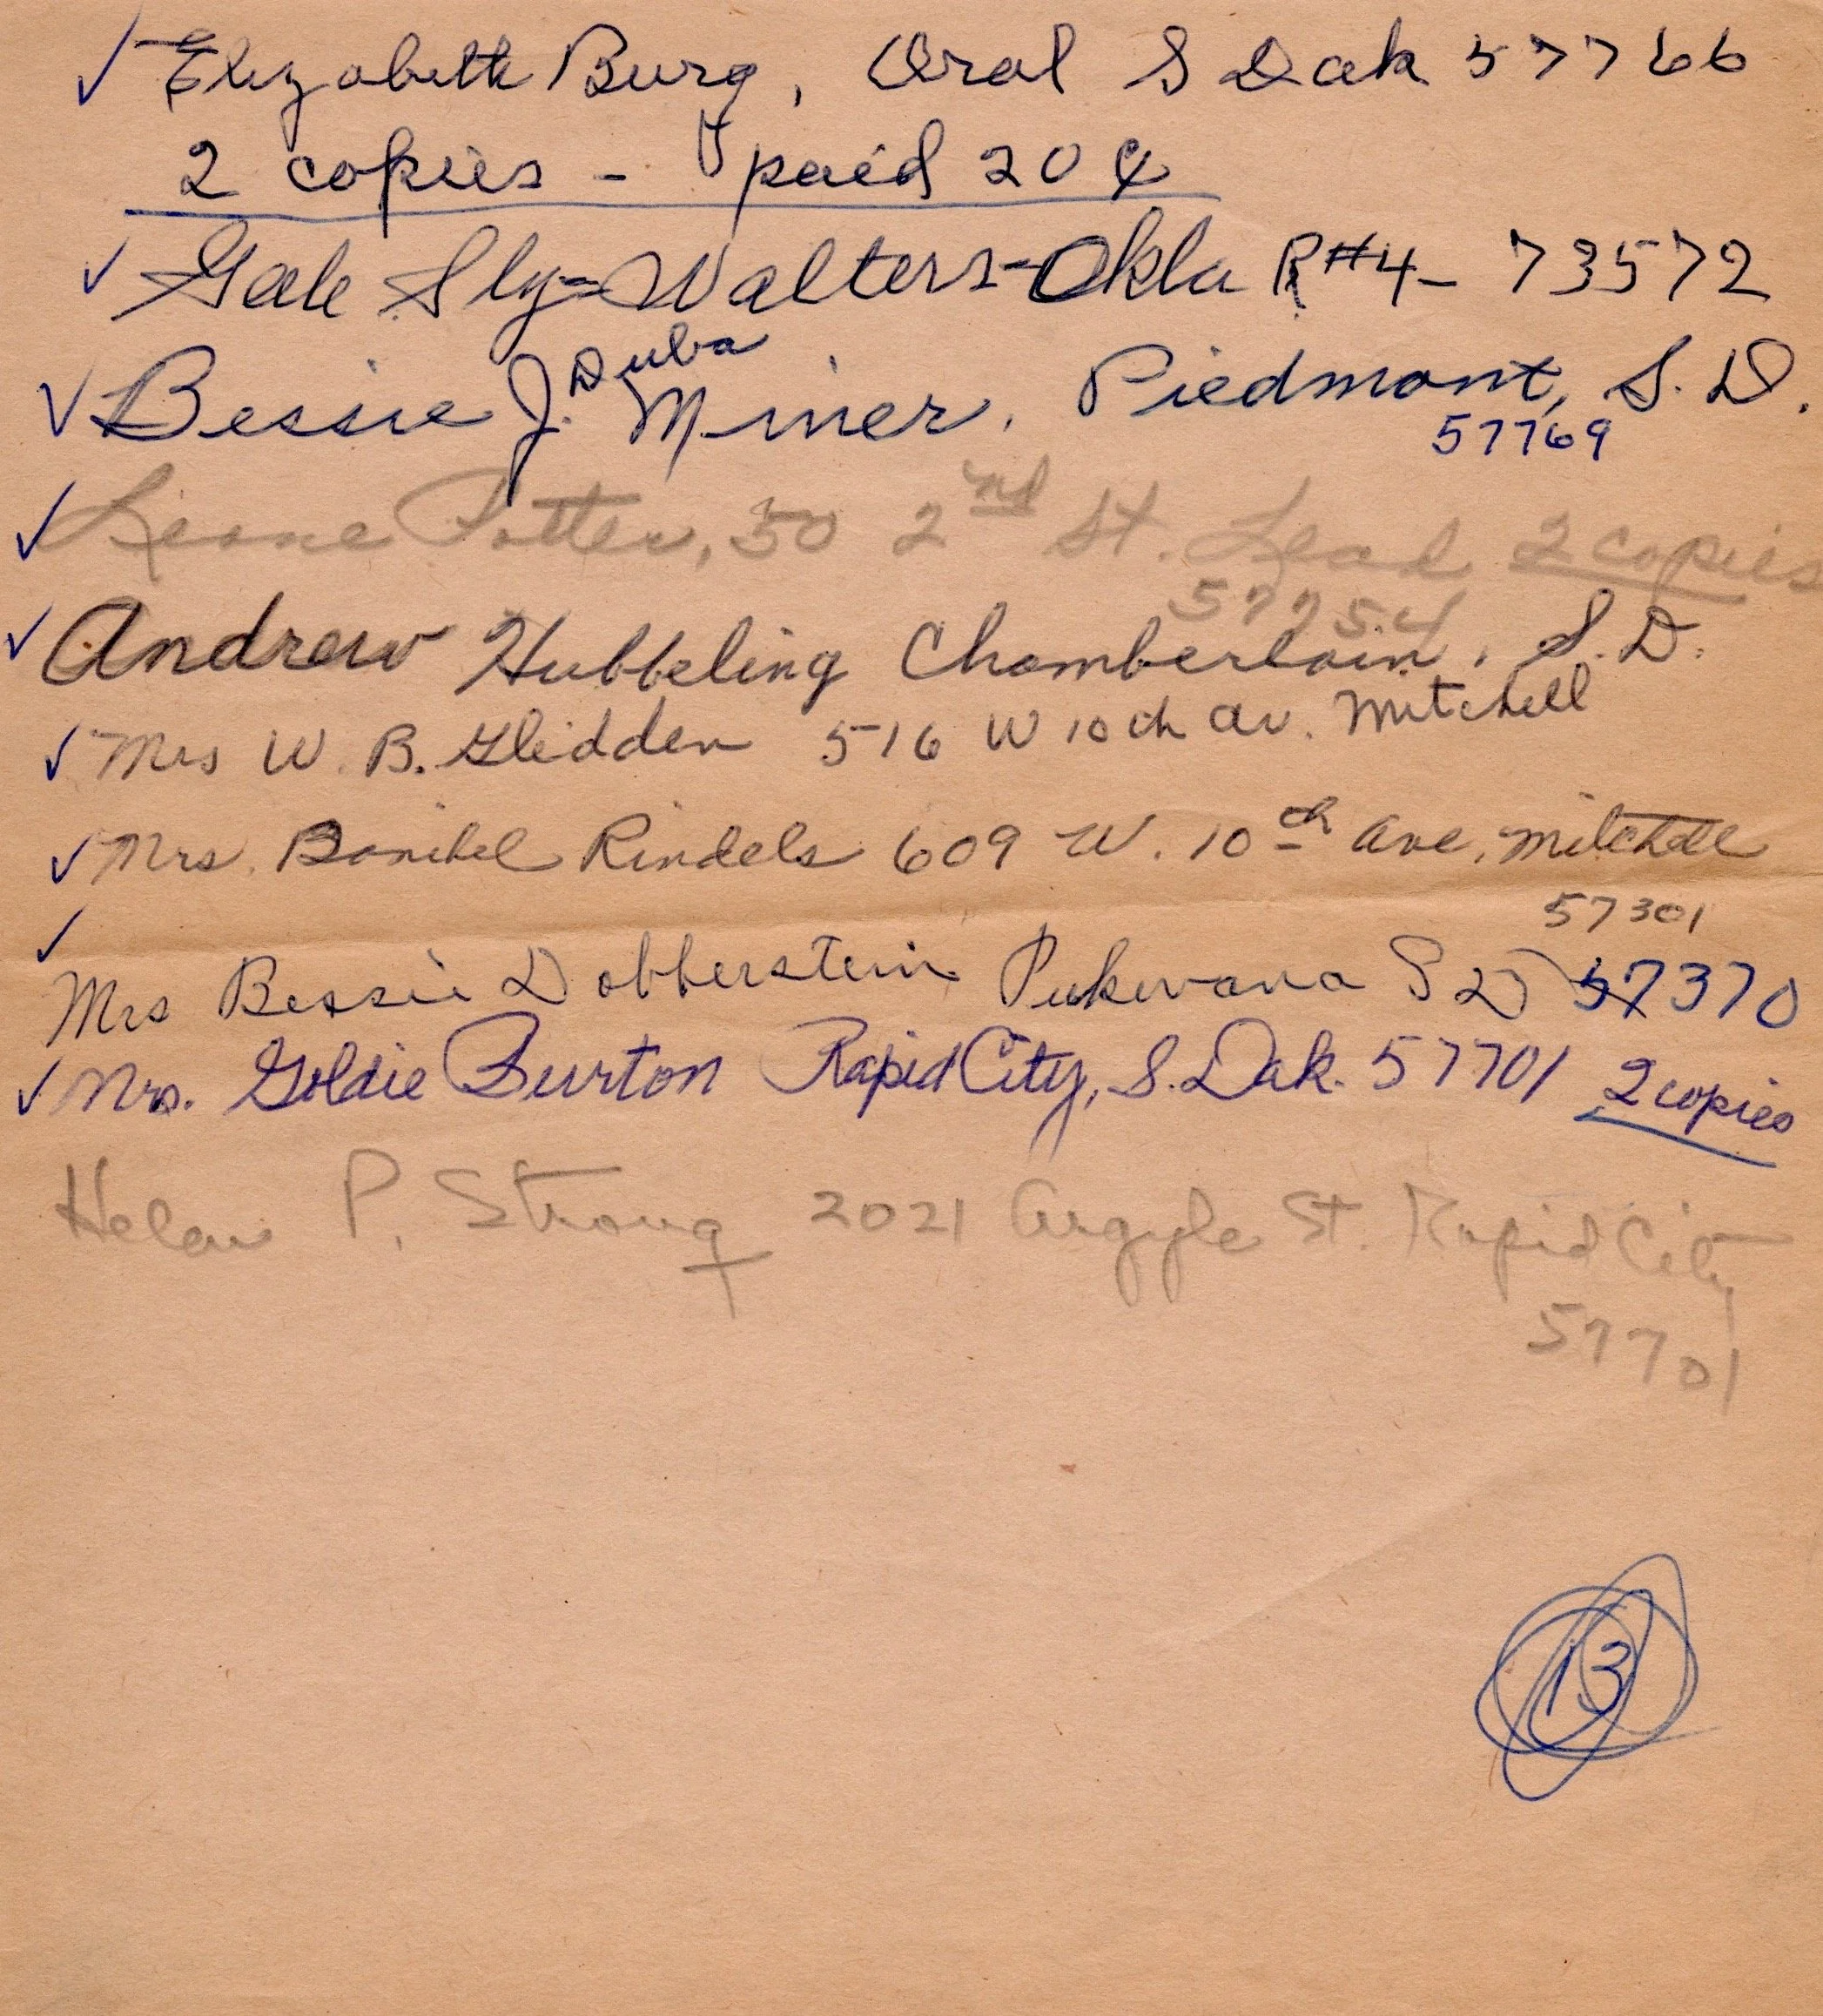 ✓ Elizabeth Burg, Oral S Dak 57766
2 copies - paid 20¢
✓ Gale Sly - Walters - Okla R#4 - 73572
Duba
✓ Bessie J. Miner, Piedmont, S. D.
57769
✓ Leone Potter, 50 2nd St. Lead 2 copies
57754
✓ Andrew Hubbeling Chamberlain, S.D.
✓ Mrs W. B. Glidden 516 W 10th Av. Mitchell
✓ Mrs. Bonibel Rindels 609 W. 10th Ave, Mitchell
57301
✓
Mrs Bessie Dobberstein Pukwana S D 57370
✓ Mrs. Goldie Burton Rapid City, S. Dak. 57701 2 copies
Helen P. Strong 2021 Argyle St. Rapid City
57701
13